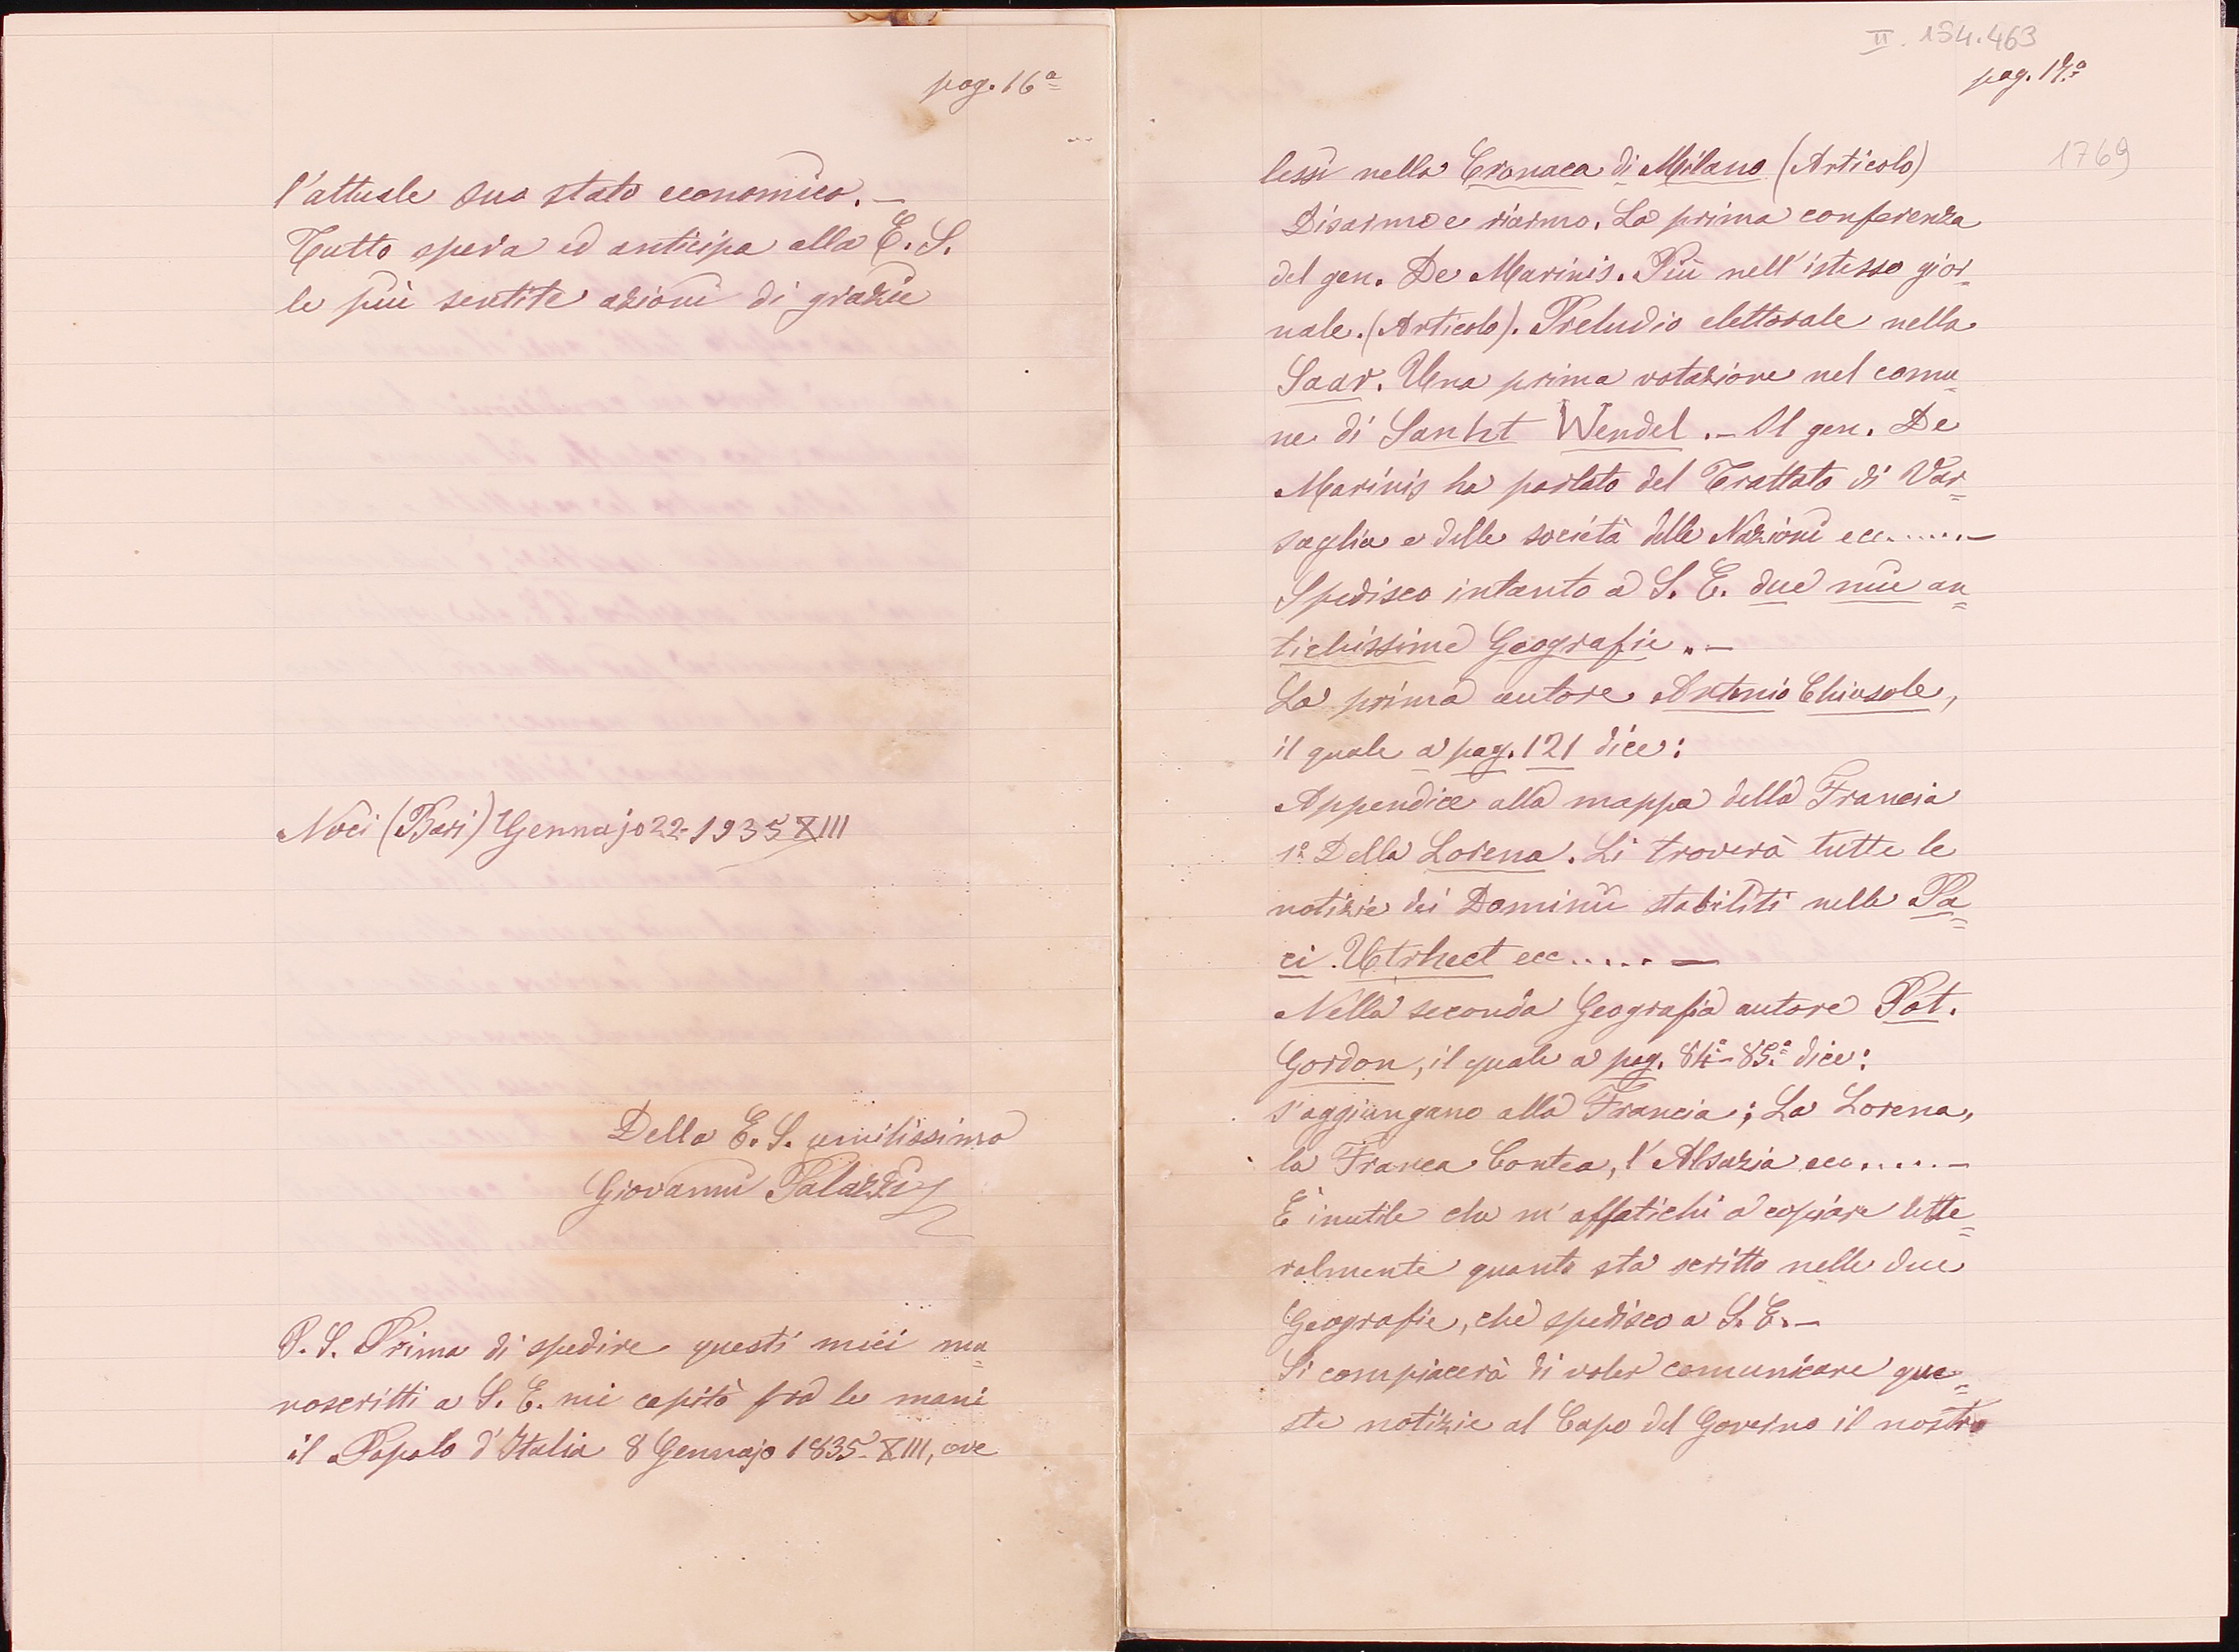 pag. 16ª
l'attuale suo stato economico. —
Tutto spera ed anticipa alla E. S.
le più sentite azioni di grazie
Noci (Bari) Gennajo 22-1935 XIII
Della E. S. umilissimo
Giovanni Palazzi
P. S. Prima di spedire questi miei ma=
noscritti a S. E. mi capitò fra le mani
il Popolo d'Italia 8 Gennajo 1835-XIII, ove
II. 154.463
pag. 17.ª
1769
lessi nella Cronaca di Milano (Articolo)
Disarmo e riarmo. La prima conferenza
del gen. De Marinis. Più nell'istesso gior=
nale. (Articolo). Preludio elettorale nella
Saar. Una prima votazione nel comu=
ne di Sankt Wendel. — Il gen. De
Marinis ha parlato del Trattato di Var=
saglia e della società delle Nazioni ecc.......—
Spedisco intanto a S. E. due mie an=
tichissime Geografie. —
La prima autore Antonio Chiusole,
il quale a pag. 121 dice:
Appendice alla mappa della Francia
1ª Della Lorena. Li troverà tutte le
notizie dei Dominii stabiliti nelle Pa=
ci Utrhect ecc..... —
Nella seconda Geografia autore Pat.
Gordon, il quale a pag. 84ª-85.ª dice:
s'aggiungano alla Francia; La Lorena,
la Franca Contea, l'Alsazia ecc..... —
È inutile che m'affatichi a copiare lette=
ralmente quanto sta scritto nelle due
Geografie, che spedisco a S. E. —
Si compiacerà di voler comunicare que=
ste notizie al Capo del Governo il nostro